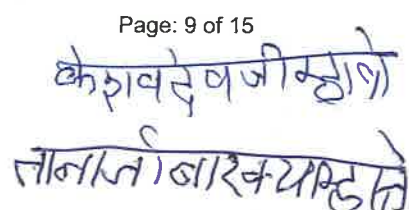 Page: 9 of 15
केशवदेवजी म्हात्रे
तानाजी बारक्या म्हात्रे